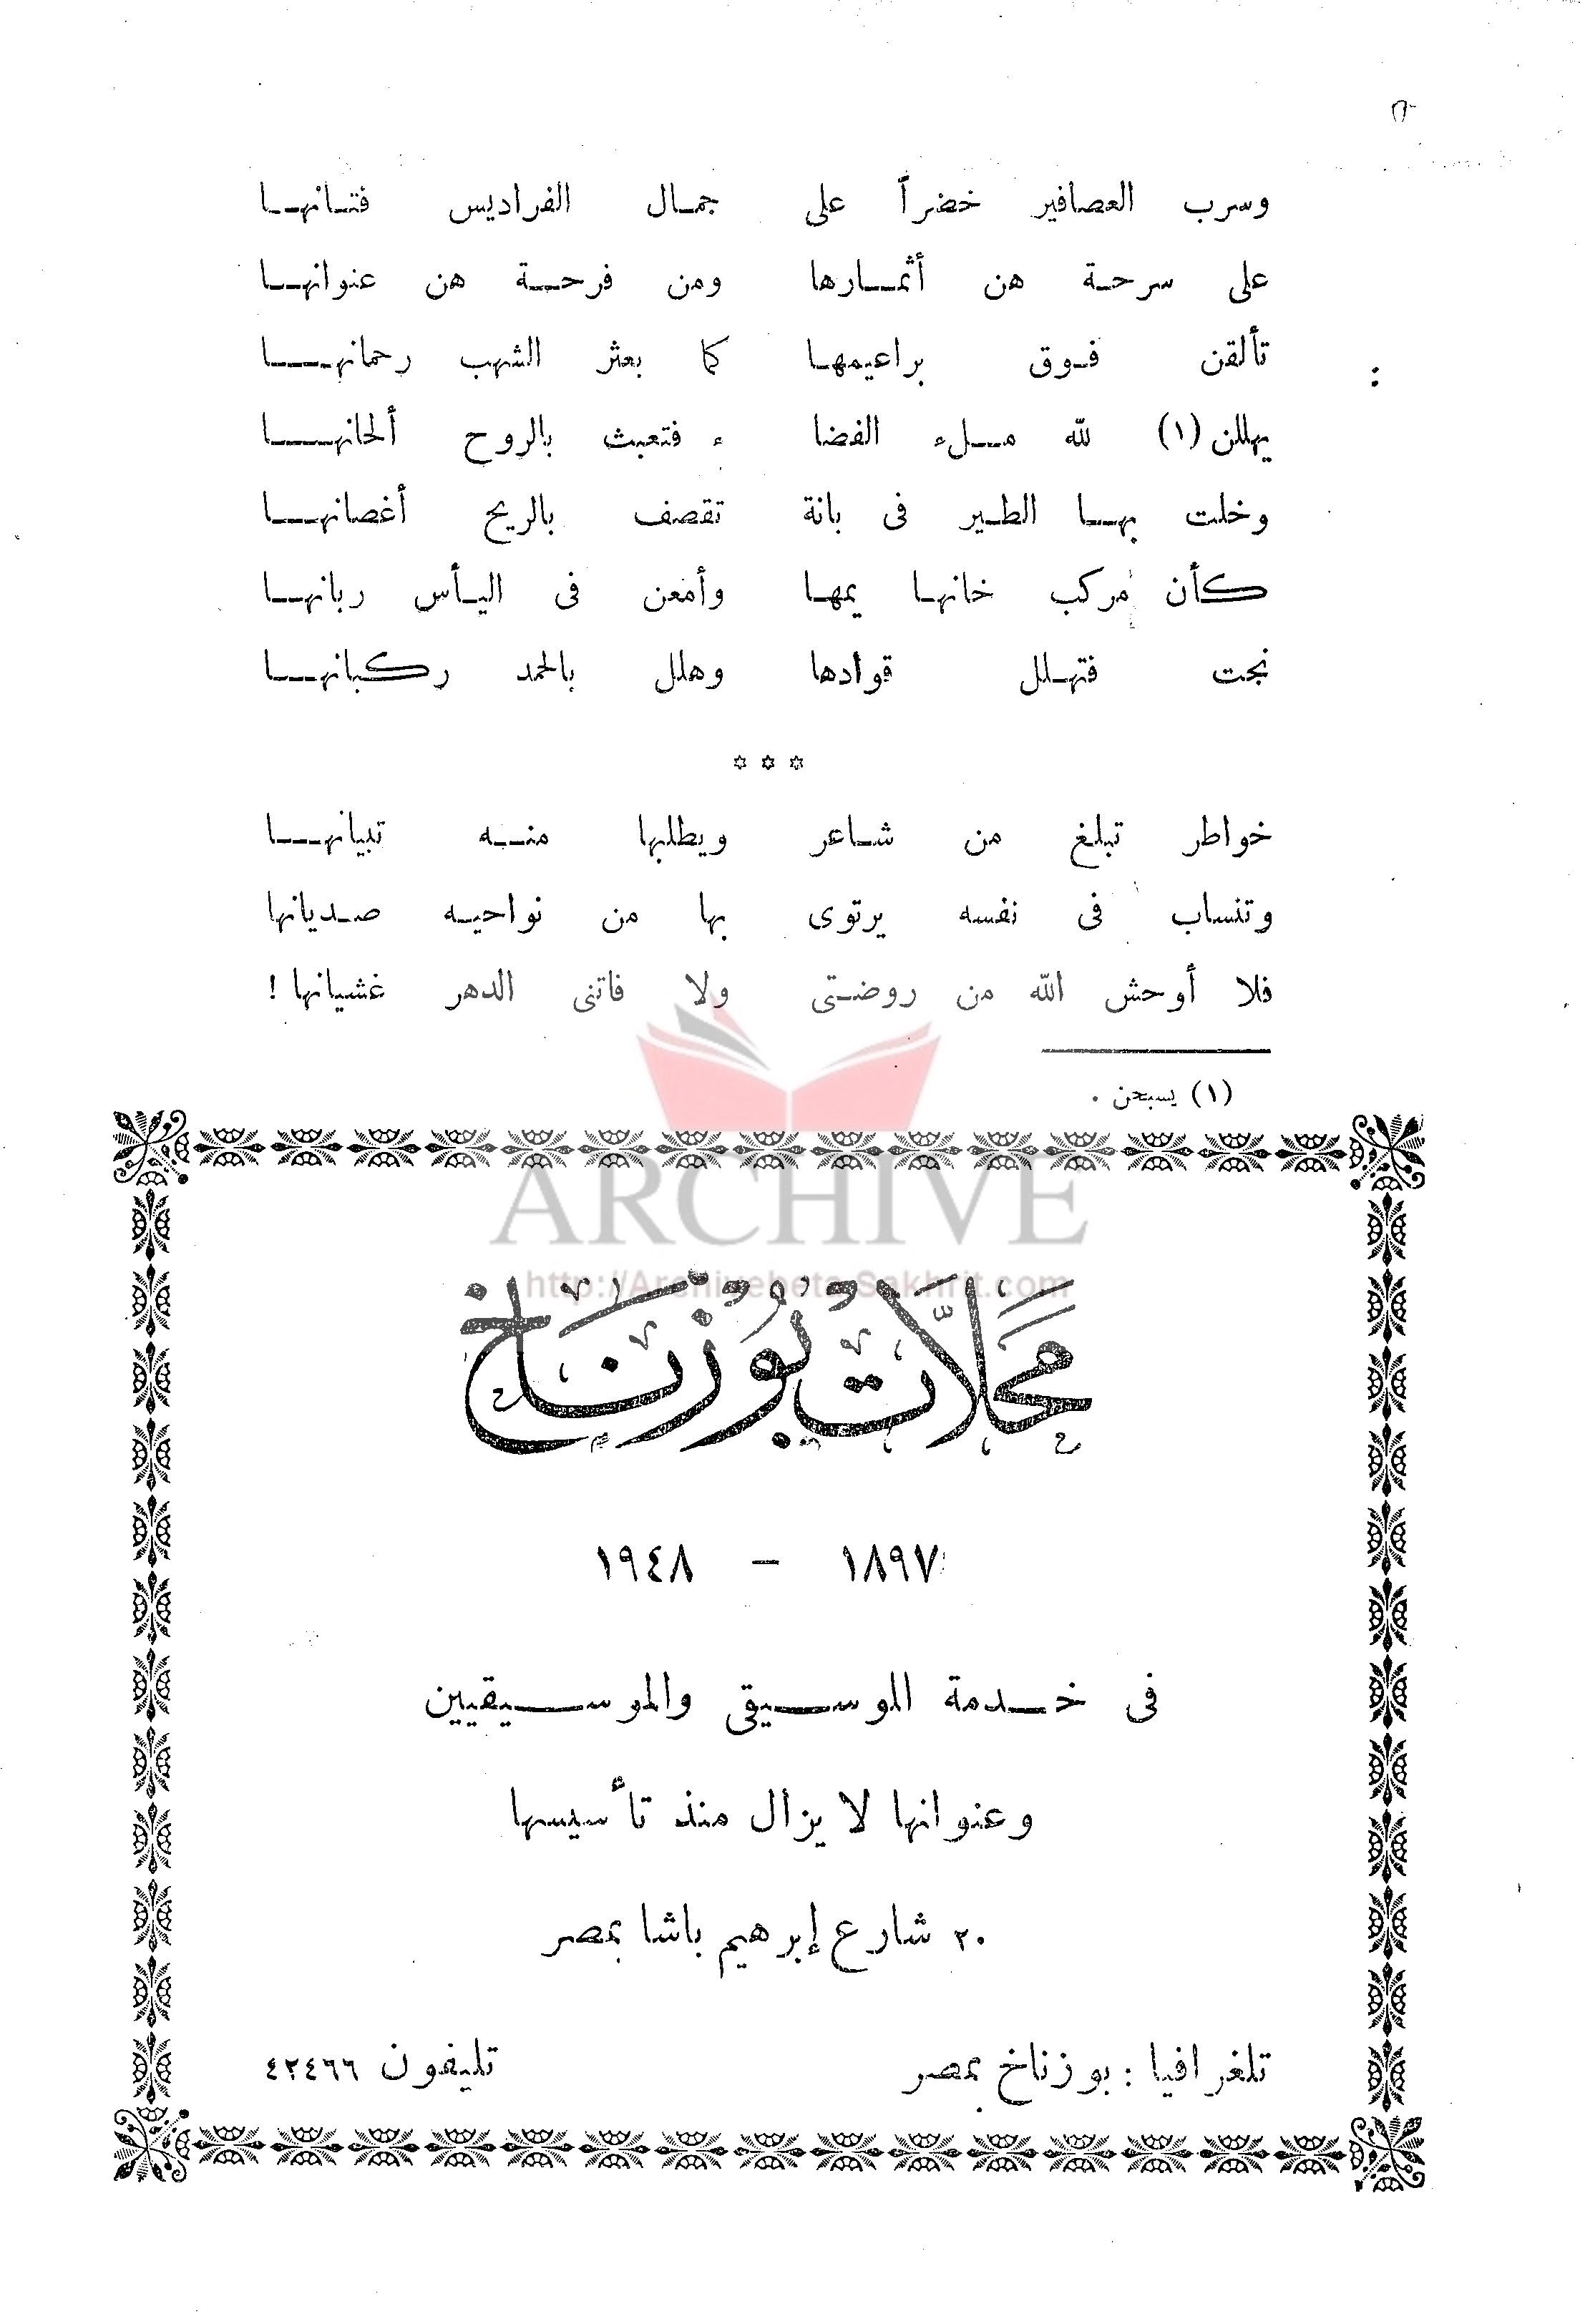 وسرب العصافير خضراً على جمال الفراديس فتانها
على سرحة هن أثمارها ومن فرحة هن عنوانها
تألقن فوق براعيمها كما بعثر الشهب رحمانها
يهللن (١) لله ملء الفضا ء فتعبث بالروح ألحانها
وخلت بها الطير فى بانة تقصف بالريح أغصانها
كأن مركب خانها يمها وأمعن فى اليأس ربانها
نجت فتهلل قوادها وهلل بالحمد ركبانها
* * *
خواطر تبلغ من شاعر ويطلبها منه تبيانها
وتنساب فى نفسه يرتوى بها من نواحيه صديانها
فلا أوحش الله من روضتى ولا فاتنى الدهر غشيانها !
(١) يسبحن .
ARCHIVE
http://Archivebeta.Sakhrit.com
محلات بوزناخ
١٨٩٧ - ١٩٤٨
فى خدمة الموسيقى والموسيقيين
وعنوانها لا يزال منذ تأسيسها
٢٠ شارع إبرهيم باشا بمصر
تلغرافيا : بوزناخ بمصر تليفون ٤٢٤٦٦